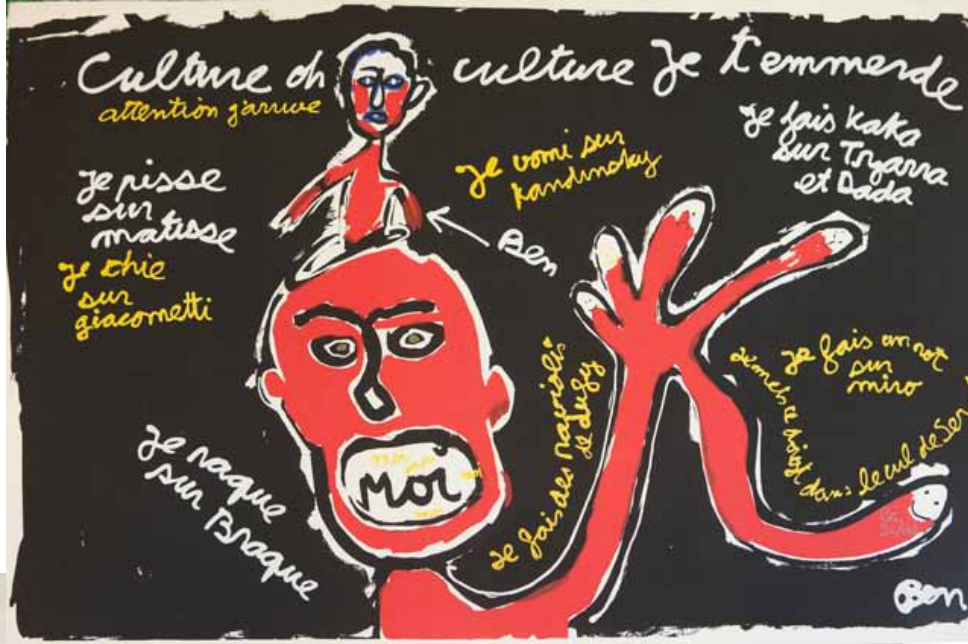 Culture oh culture Je t'emmerde
attention j'arrive
Je pisse
sur
matisse
Je chie
sur
giacometti
Je vomi sur
Kandinsky
Ben
Je fais KaKa
sur Tzarra
et Dada
Je fais un rot
sur
miro
Je mets ce doigt
dans le cul de Ser
Je fais des raviolis
de dufy
moi moi
moi
MOi
moi
Je raque
sur Braque
Ben